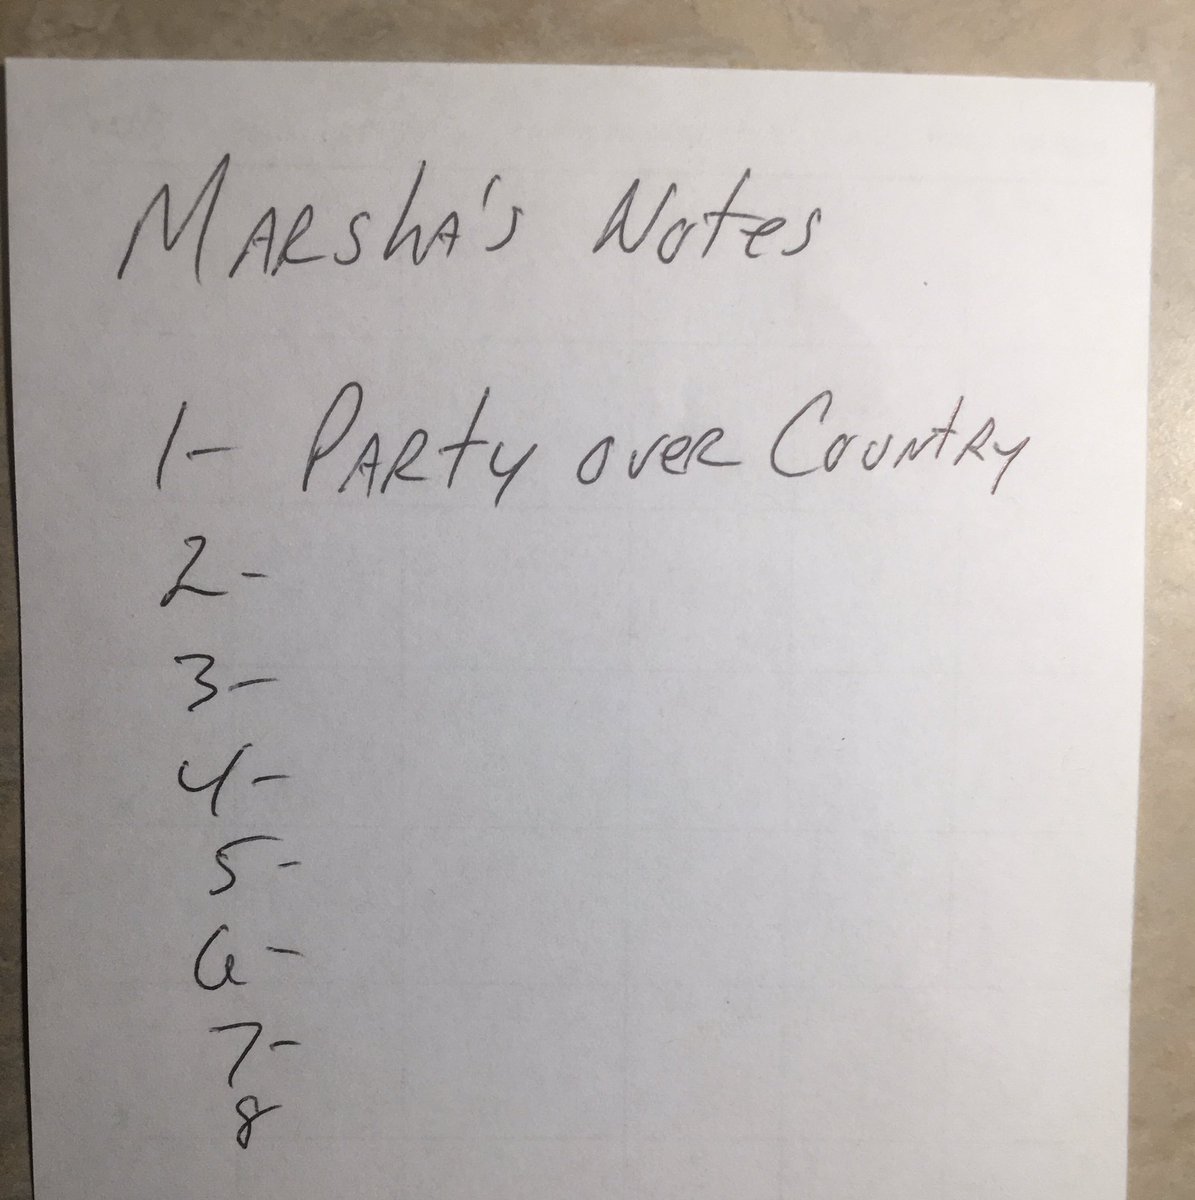 Marsha's Notes
1- Party over Country
2-
3-
4-
5-
6-
7-
8